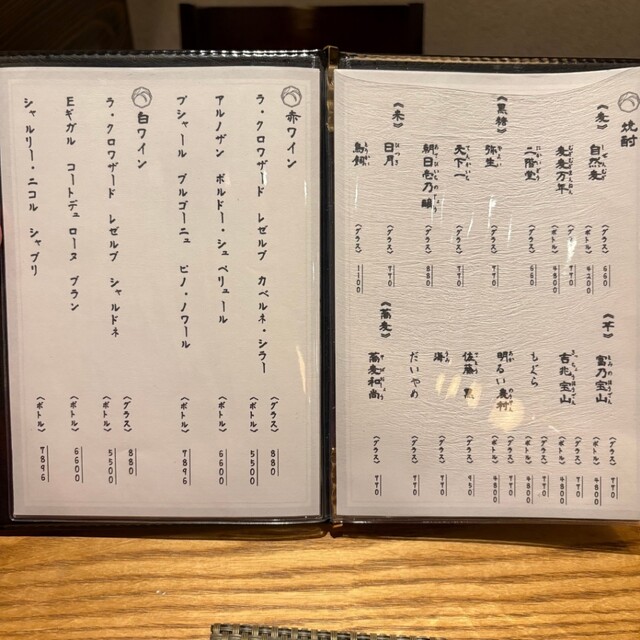 焼酎
《麦》
自然麦
〈グラス〉 660
〈ボトル〉 4200
麦麦万年
〈グラス〉 770
〈ボトル〉 4800
二階堂
〈グラス〉 660
《黒糖》
弥生
〈グラス〉 770
天下一
〈グラス〉 770
朝日壱乃醸
〈グラス〉 880
《米》
日月
〈グラス〉 770
鳥飼
〈グラス〉 1100
《芋》
富乃宝山
〈グラス〉 770
〈ボトル〉 4800
吉兆宝山
〈グラス〉 770
〈ボトル〉 4800
もぐら
〈グラス〉 770
〈ボトル〉 4800
明るい農村
〈グラス〉 770
〈ボトル〉 4800
佐藤 黒
〈グラス〉 950
海
〈グラス〉 770
だいやめ
〈グラス〉 770
《蕎麦》
蕎麦和尚
〈グラス〉 770
赤ワイン
ラ・クロワザード レゼルブ カベルネ・シラー
〈グラス〉 880
〈ボトル〉 5500
アルノザン ボルドー・シュペリュール
〈ボトル〉 6600
ブシャール ブルゴーニュ ピノ・ノワール
〈ボトル〉 7896
白ワイン
ラ・クロワザード レゼルブ シャルドネ
〈グラス〉 880
〈ボトル〉 5500
Eギガル コートデュローヌ ブラン
〈ボトル〉 6600
シャルリー・ニコル シャブリ
〈ボトル〉 7896